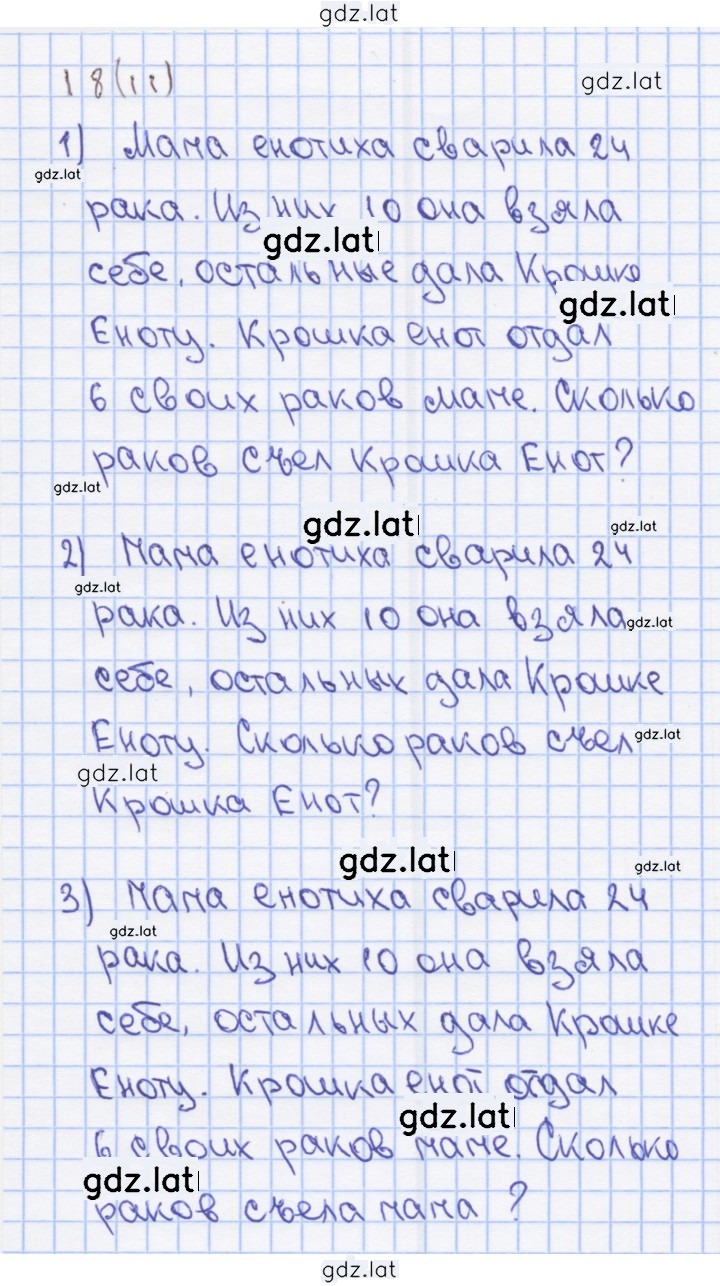 gdz.lat
18(11)
gdz.lat
1) Мама енотиха сварила 24
gdz.lat
рака. Из них 10 она взяла
gdz.lat
себе, остальные дала Крошке
gdz.lat
Еноту. Крошка енот отдал
6 своих раков маме. Сколько
раков съел Крошка Енот?
gdz.lat
gdz.lat
gdz.lat
2) Мама енотиха сварила 24
gdz.lat
рака. Из них 10 она взяла
gdz.lat
себе, остальных дала Крошке
Еноту. Сколько раков съел
gdz.lat
gdz.lat
Крошка Енот?
gdz.lat
gdz.lat
3) Мама енотиха сварила 24
gdz.lat
рака. Из них 10 она взяла
себе, остальных дала Крошке
Еноту. Крошка енот отдал
gdz.lat
6 своих раков маме. Сколько
gdz.lat
раков съела мама ?
gdz.lat